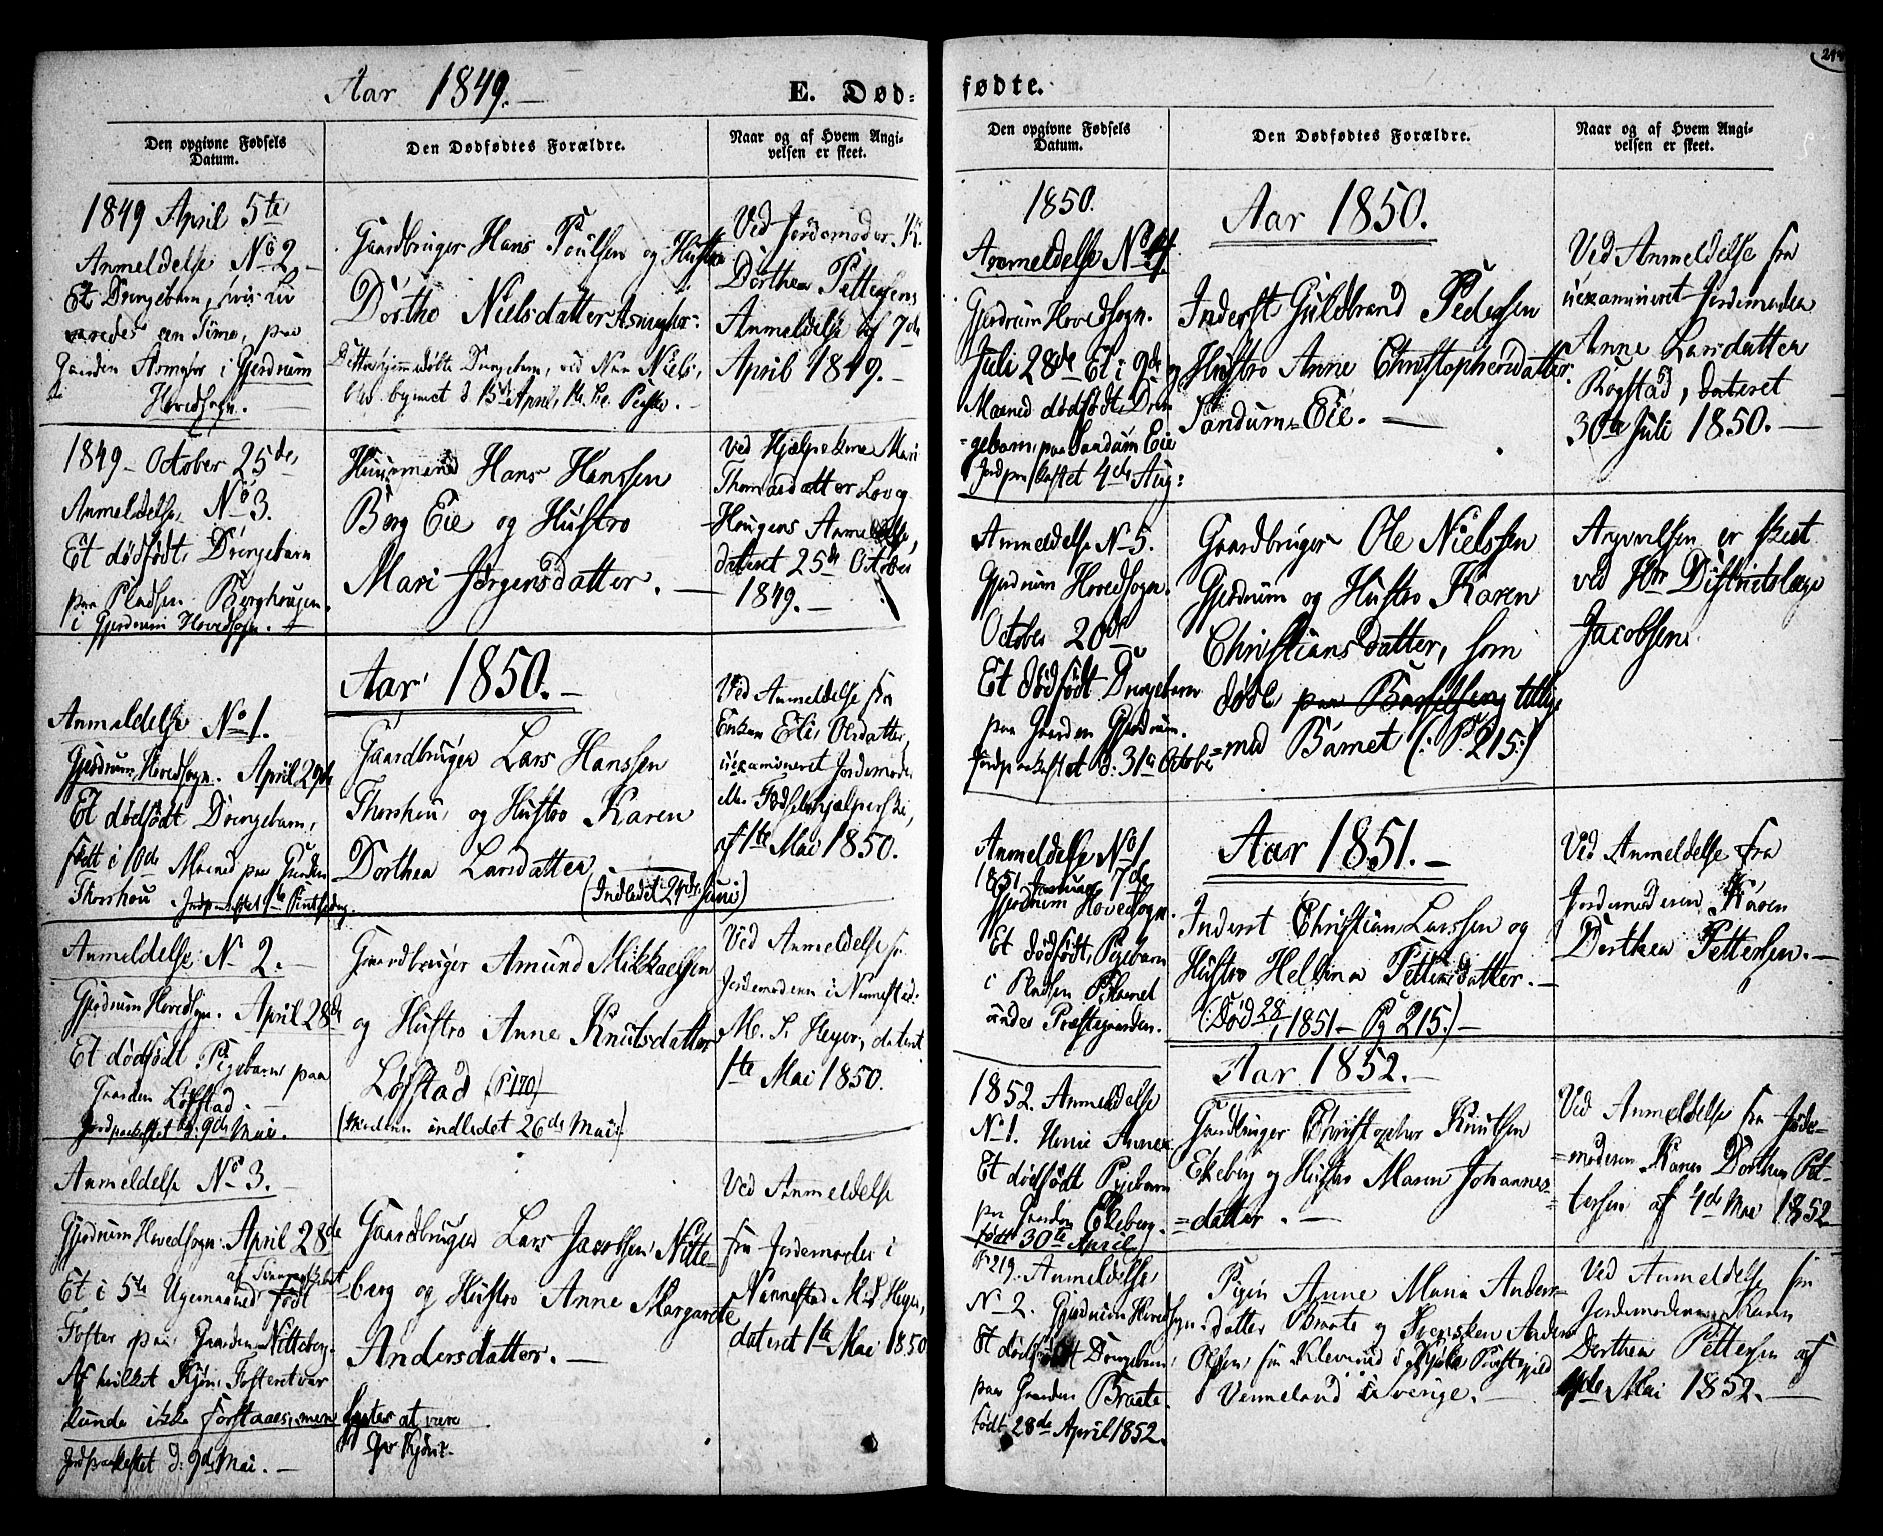 Aar 1849.-
E. Død-
Den opgivne Fødsels
Datum.
Den Dødfødtes Forældre.
Naar og af Hvem Angi-
velsen er skeet.
1849 April 5te,
Anmeldelse No 2 -
Et Drengebarn, hvis Liv
varede een Time, paa
Gaarden Asmyhr i Gjerdrum
Hovedsogn.
Gaardbruger Hans Poulsen og Hustro
Dorthe Nielsdatter Asmyhr.
Dette hjemmedøbte Drengebarn, ved Navn Niels,
blev begravet d. 15de April,
Ved Jordemoder K.
Dorthea Pettersens
Anmeldelse af 7de
April 1849.-
1849 - October 25de,
Anmeldelse No 3.
Et dødfødt Drengebarn
paa Pladsen Berghougen
i Gjerdrum Hovedsogn. -
Huusmand Hans Hanssen
Berg Eie og Hustro
Mari Jørgensdatter. -
Ved Hjælpekone Mari
Thomasdatter
Hougens Anmeldelse,
dateret 25de October
1849. -
Aar 1850. -
Anmeldelse No 1.
Gjerdrum Hovedsogn. April 29de
Et dødfødt Drengebarn,
født i 10de Maaned paa Gaarden
Thorshou. Jordpaakastet 1te Pintsedag.
Gaardbruger Lars Hanssen
Thorshou, og Hustro Karen
Dorthea Larsdatter
(Indledet 24de Juni)
Ved Anmeldelse fra
Enken Eli Olsdatter,
uexamineret Jordemoder
eller Fødselshjælperske,
af 1te Mai 1850.
Anmeldelse No 2. -
Gjerdrum Hovedsogn. April 28de
Et dødfødt Pigebarn paa
Gaarden Løfstad. -
Jordpaakastet d. 9de Mai.
Gaardbruger Amund Mikkaelsen
og Hustro Anne Knutsdatter
Løfstad (P 170)
(Moderen indledet 26de Mai)
Ved Anmeldelse fr
Jordemoderen i Nannestad
M. S. Heyer, dateret
1te Mai 1850.
Anmeldelse No 3. -
Gjerdrum Hovedsogn. April 28de
Et i 5te Ugemaaned født
Foster paa Gaarden Nitteberg.
Af hvilket Kjøn Fosteret var
kunde ikke forstaaes, men syntes at være
Jordpaakastet d. 9de Mai. -
Gaardbruger Lars Jacobsen Nitte-
berg og Hustro Anne Margarete
Andersdatter. -
Ved Anmeldelse
fra Jordemoder i
Nannestad Heyer,
dateret 1te Mai 1850
fødte.
Den opgivne Fødsels
Datum.
Den Dødfødtes Forældre.
Naar og af Hvem Angi-
velsen er skeet.
1850.
Aar 1850.
Anmeldelse No 4.
Gjerdrum Hovedsogn.
Juli 28de Et i 9de
Maaned dødfødt Dren
=gebarn, paa Sandum Eie
Jordpaakastet 4de Aug:
Inderst Guldbrand Pedersen og
Hustro Anne Christophersdatter
Sandum=Eie. -
Ved Anmeldelse fra
uexamineret Jordemoder
Anne Larsdatter
Rogstad, dateret
30te Juli 1850. -
Anmeldelse No 5.
Gjerdrum Hovedsogn.
October 20de
Et dødfødt Drengebarn
paa Gaarden Gjerdrum.
Jordpaakastet d. 31te October
Gaardbruger Ole Nielssen
Gjerdrum og Hustro Karen
Christiansdatter, som
døde paa Barselseng tillige
=med Barnet (: P. 215:)
Angivelsen er skeet
ved Hr Districtslæge
Jacobsen.
Aar 1851. -
Anmeldelse No 1
1851 Januar 7de
Gjerdrum Hovedsogn.
Et dødfødt Pigebarn
i Pladsen
under Præstegaarden.
Inderst Christian Larssen og
Hustro Hellina Pettersdatter. -
(: Død 28/1 1851 - Pg 215.) -
Ved Anmeldelse fra
Jordemoderen Karen
Dorthea Pettersen. -
Aar 1852. -
1852. Anmeldelse
No 1. Annex
Et dødfødt Pigebarn
paa Gaarden Ekeberg.
født 30te April
Gaardbruger Christopher Knutsen
Ekeberg og Hustro Maren Johannes=
=datter. -
Ved Anmeldelse fra Jorde=
=moderen Karen Dorthea Pet-
tersen af 4de Mai 1852
P 219. Anmeldelse
No 2. Gjerdrum Hovedsogn.
Et dødfødt Drengebarn,
paa Gaarden Braate.
født 28de April 1852.
Pigen Anne Maria Anders=
datter Braate og Svensken Anders
Olsen, fra Præstegjeld
Vermeland i Sverige. -
Ved Anmeldelse fra
Jordemoderen Karen
Dorthea Pettersen af
Mai 1852. -